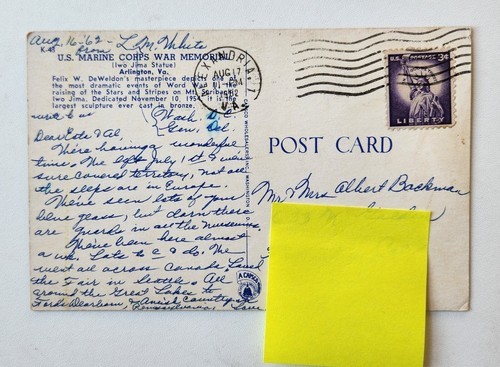 Aug. 16-'62- L. M. White
K-48 From
U.S. MARINE CORPS WAR MEMORIAL
(Iwo Jima Statue)
Arlington, Va.
Felix W. DeWeldon's masterpiece depicts one of
the most dramatic events of World War
raising of the Stars and Stripes on Mt. Suribachi
Iwo Jima. Dedicated November 10, 1954, it is the
largest sculpture ever cast in bronze.
ALEXANDRIA
AUG 17
1962
VA.
U.S. POSTAGE 3¢
LIBERTY
POST CARD
Mr & Mrs Albert Backman
write to us Wash. D.C.
Gen. Del.
Dear Este & Al,
We're having a wonderful
time. We left July 1st & have
sure covered territory, not all
the steps are in Europe.
We've seen lots of your
blue glass, but darn there
are guards in all the museums.
We've been here almost
a wk. Lots to see & do. We
went all across Canada, saw
the Fair in Seattle. All
around the Great Lakes to
Fords Dearborn, & Amish country
Pennsylvania,